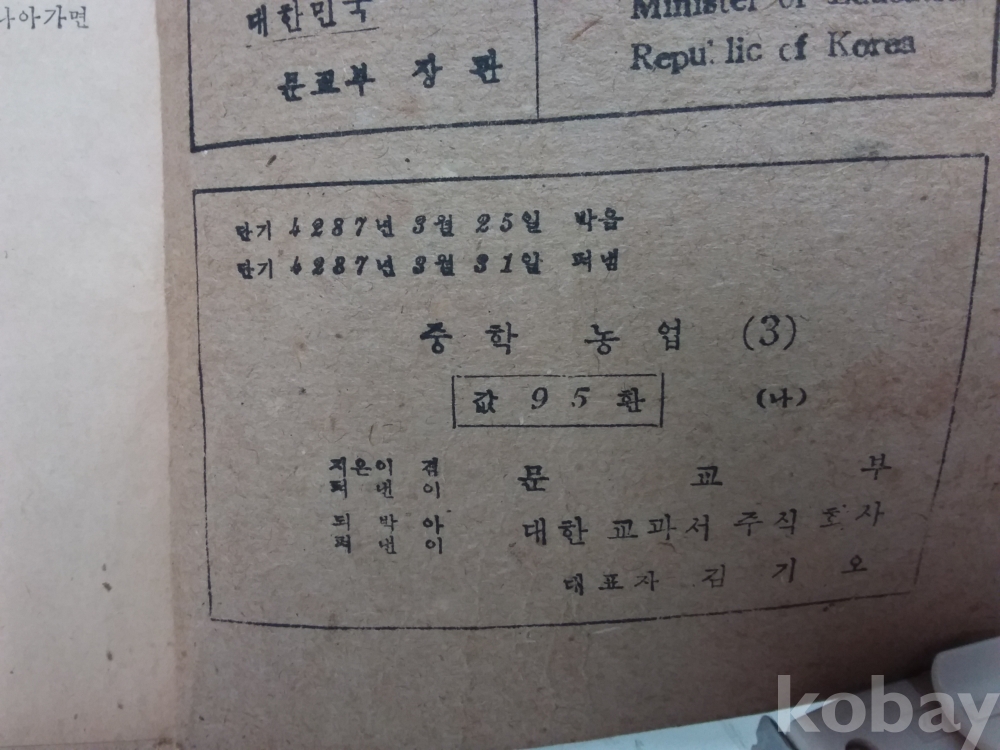 나아가면
대한민국
문교부 장관
Minister of Education
Repu lic of Korea
단기 4287년 3월 25일 박음
단기 4287년 3월 31일 펴냄
중학 농업 (3)
값 95환 (나)
지은이 겸
펴낸이 문교부
되박아
펴낸이 대한 교과서 주식 회사
대표자 김기오
kobay